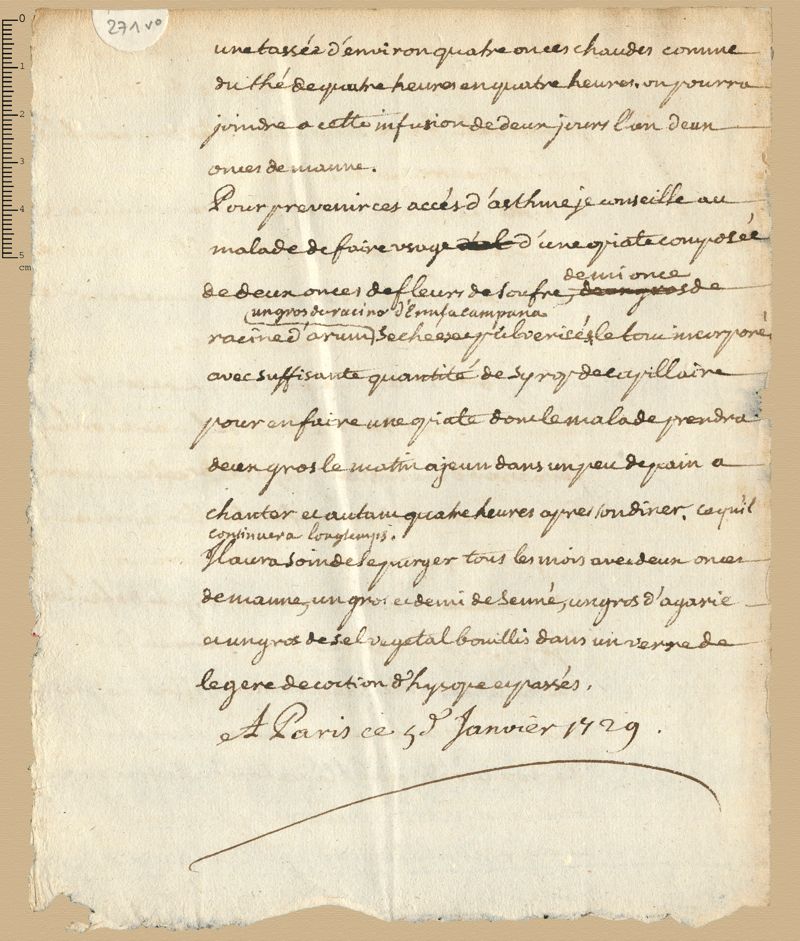 271 vo
une tassée d'environ quatre onces chaudes comme
du thé de quatre heures en quatre heures. on pourra
joindre a cette infusion de deux jours l'un deux
onces de manne.
Pour prevenir ces accés d'asthme je conseille au
malade de faire usage d'une opiate composée
de deux onces de fleurs de soufre, demi once de
un gros de racine d'Enula campana
racine d'arum sechée et pulverisés, le tout incorporé
avec suffisante quantité de syrop de capillaire
pour en faire une opiate dont le malade prendra
deux gros le matin a jeun dans un peu de pain a
chanter et autant quatre heures apres son diner. ce qu'il
continuera longtemps.
Il aura soin de se purger tous les mois avec deux onces
de manne, un gros et demi de senné, un gros d'agaric
et un gros de sel vegetal bouillis dans un verre de
legere decoction d'hysope et passés.
A Paris ce 5e Janvier 1729.
0
1
2
3
4
5
cm